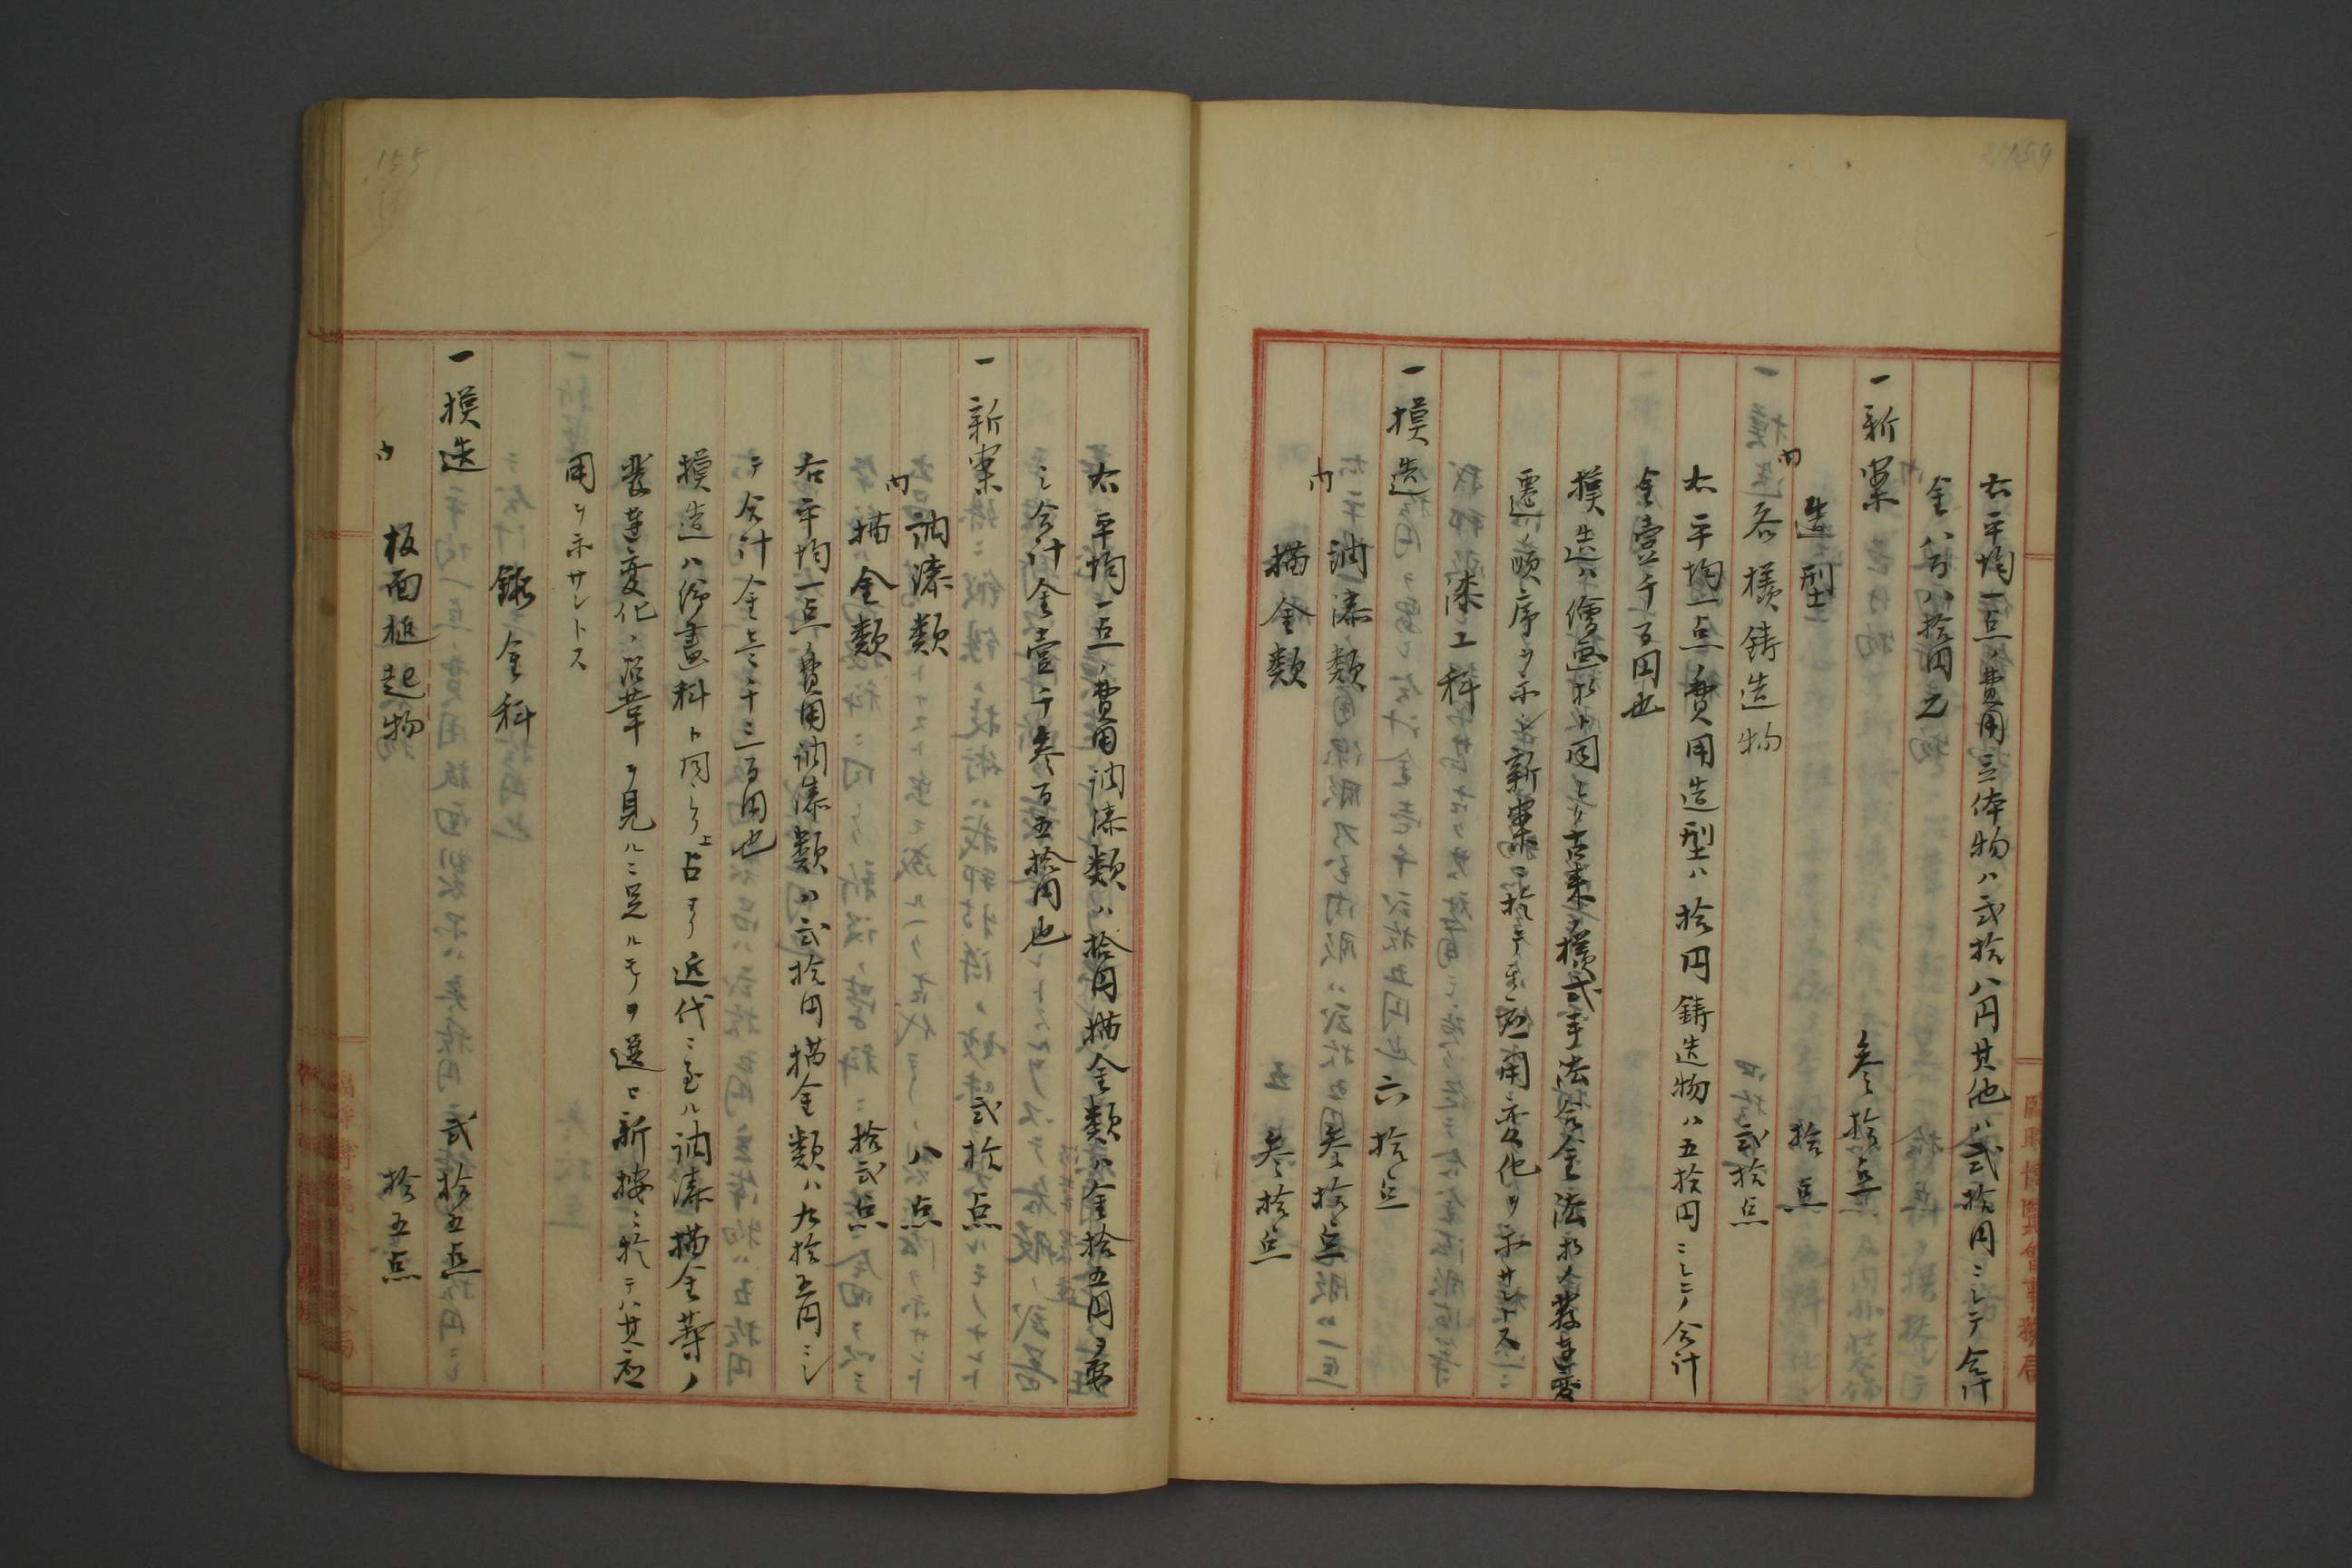 右平均一点ノ費用立体物ハ弐拾八円其他ハ弐拾円ニシテ合計
金八百八拾円也
一新案 参拾点
内
造型 拾点
各様鋳造物 弐拾点
右平均一点ノ費用造型ハ拾円鋳造物ハ五拾円ニシテ合計
金壹千百円也
模造ハ繪画ト同シク古来ノ様式手法合金法等ノ發達変
遷ノ順序ヲ示シ新案ニ於テ其応用変化ヲ示サントス
漆工科
一模造 六拾点
内
調漆類 参拾点
描金類 参拾点
右平均一点ノ費用調漆類ハ拾円描金類ハ金拾五円
ニシ合計金壹千参百五拾円也
一新案 弐拾点
内
調漆類 八点
描金類 拾弐点
右平均一点ノ費用調漆類ハ弐拾円描金類ハ九拾五円ニシ
テ合計金壱千三百円也
模造ハ絵畫科ト同シク上古ヨリ近代ニ至ル調漆描金等ノ
發達変化ノ沿革ヲ見ルニ足ルモノヲ選ヒ新按ニ於テハ其応
用ヲ示サントス
鏤金科
一模造 弐拾五点
内
板面挺起物 拾五点
155